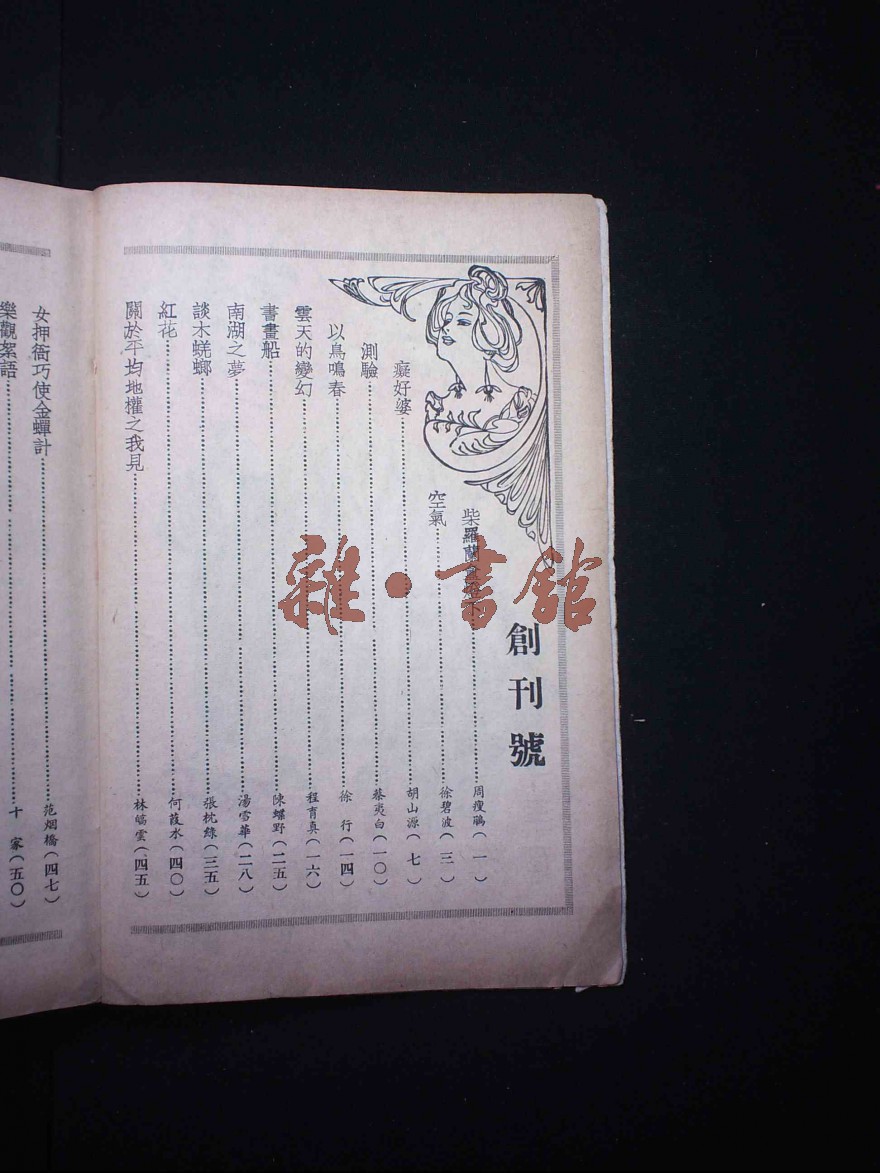 創刊號
柴羅蘭盦 下 周瘦鵑（一）
空氣 徐碧波（三）
癡好婆 胡山源（七）
測驗 蔡夷白（一〇）
以鳥鳴春 徐行（一四）
雲天的變幻 程育真（一六）
書畫船 陳蝶野（二五）
南湖之夢 湯雪華（二八）
談木蜣螂 張枕綠（三五）
紅花 何葭水（四〇）
關於平均地權之我見 林皜雲（四五）
女押衙巧使金蟬計 范烟橋（四七）
樂觀絮語 十家（五〇）
雜·書館